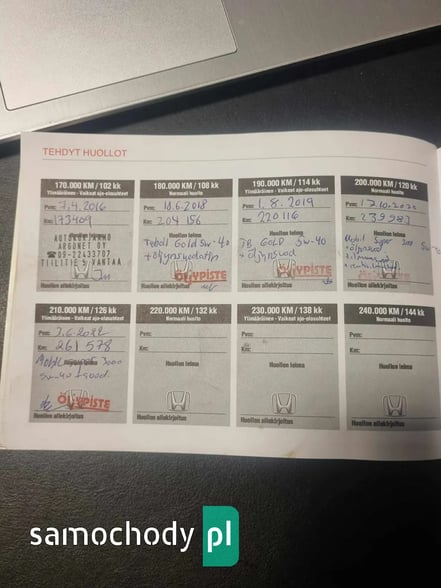 TEHDYT HUOLLOT
170.000 KM / 102 kk
Ylimääräinen - Vaikeat ajo-olosuhteet
Pvm: 7.4.2016
Km: 173409
Huollon leima
AUTOKORJAAMO
ARGONET OY
☎09-22433707
TIILITIE 5 VANTAA
Huollon allekirjoitus
180.000 KM / 108 kk
Normaali huolto
Pvm: 18.6.2018
Km: 204 156
Huollon leima
Gold 5w-40
ÖLJYPISTE
Huollon allekirjoitus
190.000 KM / 114 kk
Ylimääräinen - Vaikeat ajo-olosuhteet
Pvm: 1.8.2019
Km: 220116
Huollon leima
GOLD 5w-40
ÖLJYPISTE
Huollon allekirjoitus
200.000 KM / 120 kk
Normaali huolto
Pvm:
Km: 239983
Huollon leima
Mobil Super 3000 5w-40
ÖLJYPISTE
Huollon allekirjoitus
210.000 KM / 126 kk
Ylimääräinen - Vaikeat ajo-olosuhteet
Pvm:
Km: 261 578
Huollon leima
3000
5w-40
ÖLJYPISTE
Huollon allekirjoitus
220.000 KM / 132 kk
Normaali huolto
Pvm:
Km:
Huollon leima
Huollon allekirjoitus
230.000 KM / 138 kk
Ylimääräinen - Vaikeat ajo-olosuhteet
Pvm:
Km:
Huollon leima
Huollon allekirjoitus
240.000 KM / 144 kk
Normaali huolto
Pvm:
Km:
Huollon leima
Huollon allekirjoitus
samochody pl